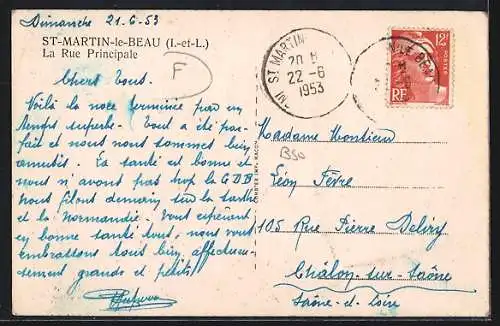 Dimanche 21-6-53
ST-MARTIN-le-BEAU (I.-et-L.)
La Rue Principale
F
Chers Tous.
Voilà la noce terminée par un
temps superbe. Tout a été par-
fait et nous nous sommes bien
amusés. La santé est bonne et
nous n'avons pas trop la G.D.B
nous filons demain sur la Sarthe
et la Normandie. Vous espérant
en bonne santé tous, nous vous
embrassons tous bien affectueu-
sement grands et petits.
ST MARTIN
20 H
22-6
1953
12F
POSTES
RF
Madame Montieu
B50
Léon Fèvre
105 Rue Pierre Deliry
Châlon-sur-Saône
Saône-et-Loire